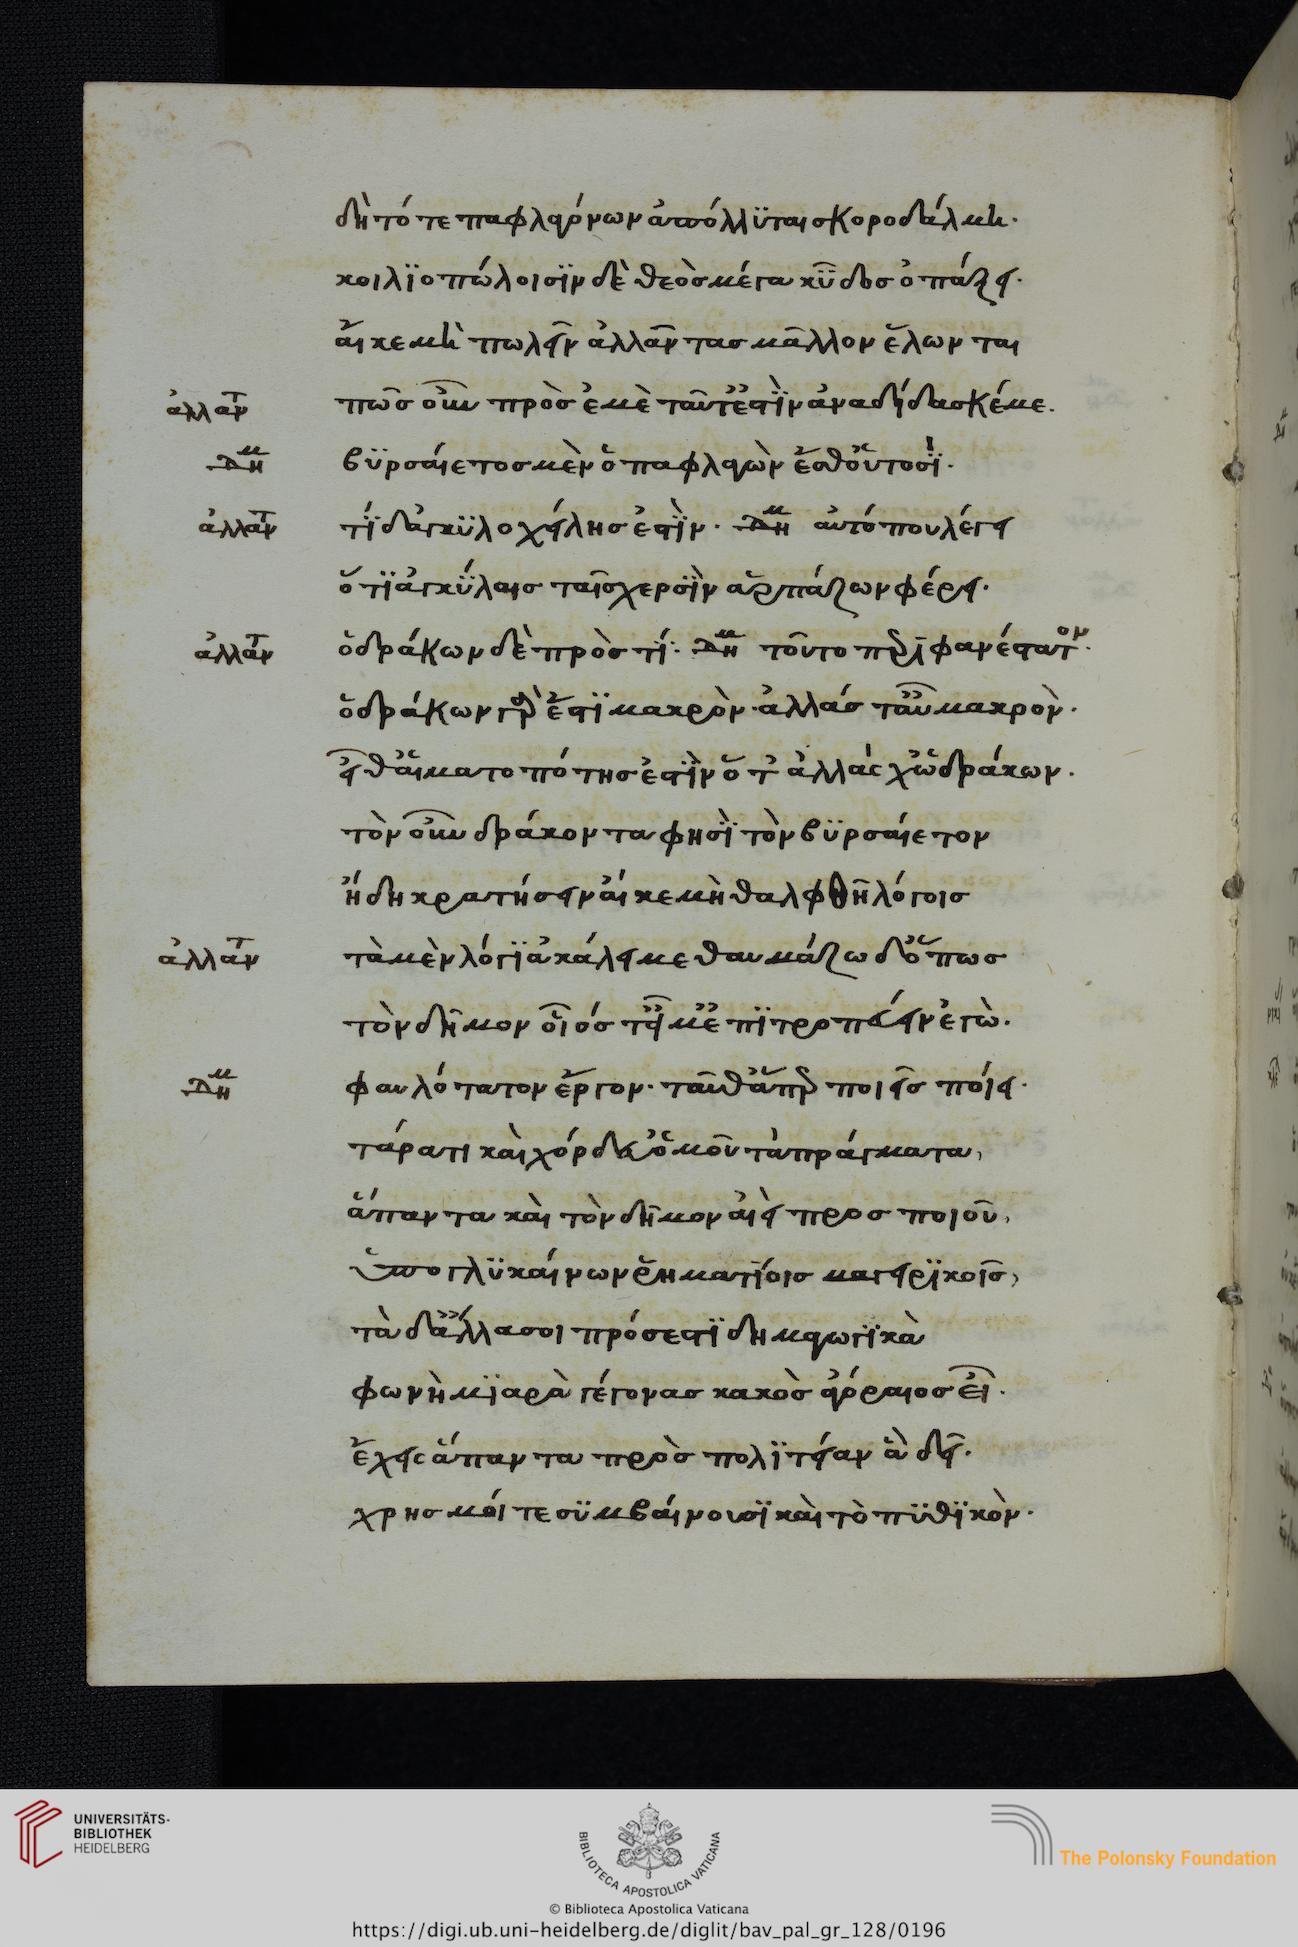 δὴ τότε παφλαγόνων ἀπόλλϋται σκοροδάλμη·
κοιλϊοπώλοισϊν δὲ θεὸσ μέγα κῦδοσ ὀπάζει·
αἴ κε μὴ πωλεῖν ἀλλᾶντασ μᾶλλον ἕλωνται
ἀλλαντ πῶσ οὖν πρὸσ ἐμὲ ταῦτ ἐστὶν ἀναδίδασκέ με.
δημ βϋρσαίετοσ μὲν ὁ παφλαγὼν ἔσθ οὑτοσΐ·
ἀλλαντ τί δ ἀγκϋλοχείλησ ἐστὶν· δημ αὐτό που λέγει
ὅτϊ ἀγκύλαισ ταῖσ χερσὶν ἁρπάζων φέρει·
ἀλλαντ ὁ δράκων δὲ πρὸσ τί· δημ τοῦτο περιφανέστατον·
ὁ δράκων γὰρ ἔστϊ μακρὸν· ἀλλάσ τ αὖ μακρὸν·
εἶθ αἱματοπότησ ἐστὶν ὅ τ ἀλλὰς χὠ δράκων·
τὸν οὖν δράκοντα φησὶ τὸν βϋρσαίετον
ἤδη κρατήσειν αἴ κε μὴ θαλφθῆ λόγοισ
ἀλλαντ τὰ μὲν λόγϊ ἀκάλει με θαυμάζω δ ὅπωσ
τὸν δῆμον οἷόσ τ εἰμ ἐπϊτροπεύειν ἐγὼ·
δημ φαυλότατον ἔργον· ταῦθ ἅπερ ποιεῖσ ποίει·
τάραττ καὶ χόρδευ ὁμοῦ τὰ πράγματα,
ἅπαντα καὶ τὸν δῆμον αἰεὶ προσποιοῦ,
ὑπογλϋκαίνων ῥηματίοισ μαγειρϊκοῖσ,
τὰ δ ἄλλα σοι πρόσεστϊ δημαγωγϊκὰ
φωνὴ μϊαρὰ γέγονασ κακὸσ ἀγόραιοσ εἶ·
ἔχεις ἅπαντα πρὸσ πολϊτείαν ἃ δεῖ·
χρησμοί τε σϋμβαίνουσϊ καὶ τὸ πϋθϊκὸν·
UNIVERSITÄTS-
BIBLIOTHEK
HEIDELBERG
BIBLIOTECA APOSTOLICA VATICANA
The Polonsky Foundation
© Biblioteca Apostolica Vaticana
https://digi.ub.uni-heidelberg.de/diglit/bav_pal_gr_128/0196